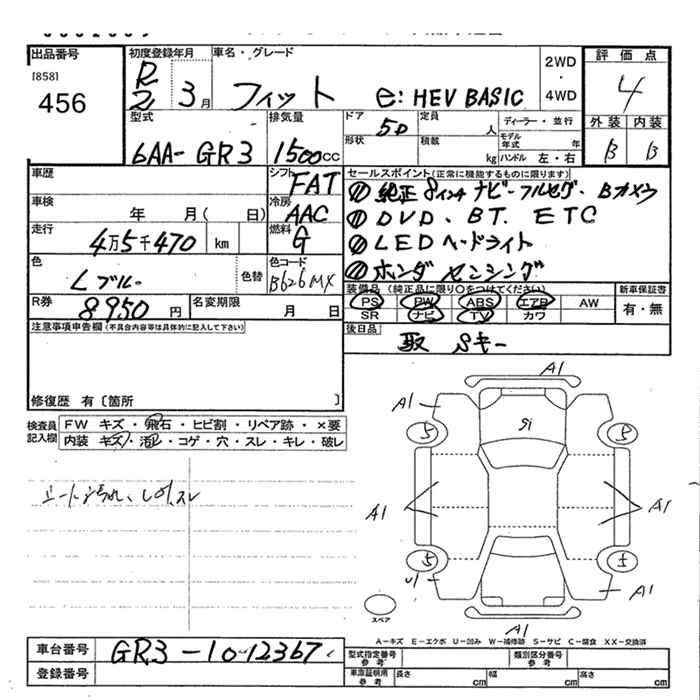 出品番号 初度登録年月 車名・グレード 2WD ・ 4WD 評価点
[858]
456 R2 3月 フィット e:HEV BASIC 4
型式 排気量 ドア 5D 定員 人 ディーラー・並行 外装 内装
6AA-GR3 1500cc 形状 積載 kg モデル年式 年 ハンドル 左・右 B B
車歴 シフト FAT セールスポイント(正常に機能するものに限ります)
純正8インチナビ-フルセグ、Bカメラ
車検 年 月( 日) 冷房 AAC DVD、BT. ETC
走行 4万5千470 km 燃料 G LEDヘッドライト
色 Lブルー 色替 色コード B626MX ホンダセンシング
装備品(純正品に限り○をつけてください) 新車保証書
R券 8950円 名変期限 月 日 PS PW ABS エアB AW 有・無
SR ナビ TV カワ
注意事項申告欄(不具合内容等は具体的に記入して下さい) 後日品 取 Sキー
修復歴 有〔箇所 〕
検査員記入欄 FW キズ・飛石・ヒビ割・リペア跡・×要
内装 キズ・汚れ・コゲ・穴・スレ・キレ・破レ
シート汚れ、
A1
A1
5 5
A1 A1
5 5
U1 A1
スペア
A1
A-キズ E-エクボ U-凹み W-補修跡 S-サビ C-腐食 XX-交換済
車台番号 GR3-1012367 型式指定番号 参考 類別区分番号 参考
登録番号 車庫証明用 参考 長さ cm 幅 cm 高さ cm